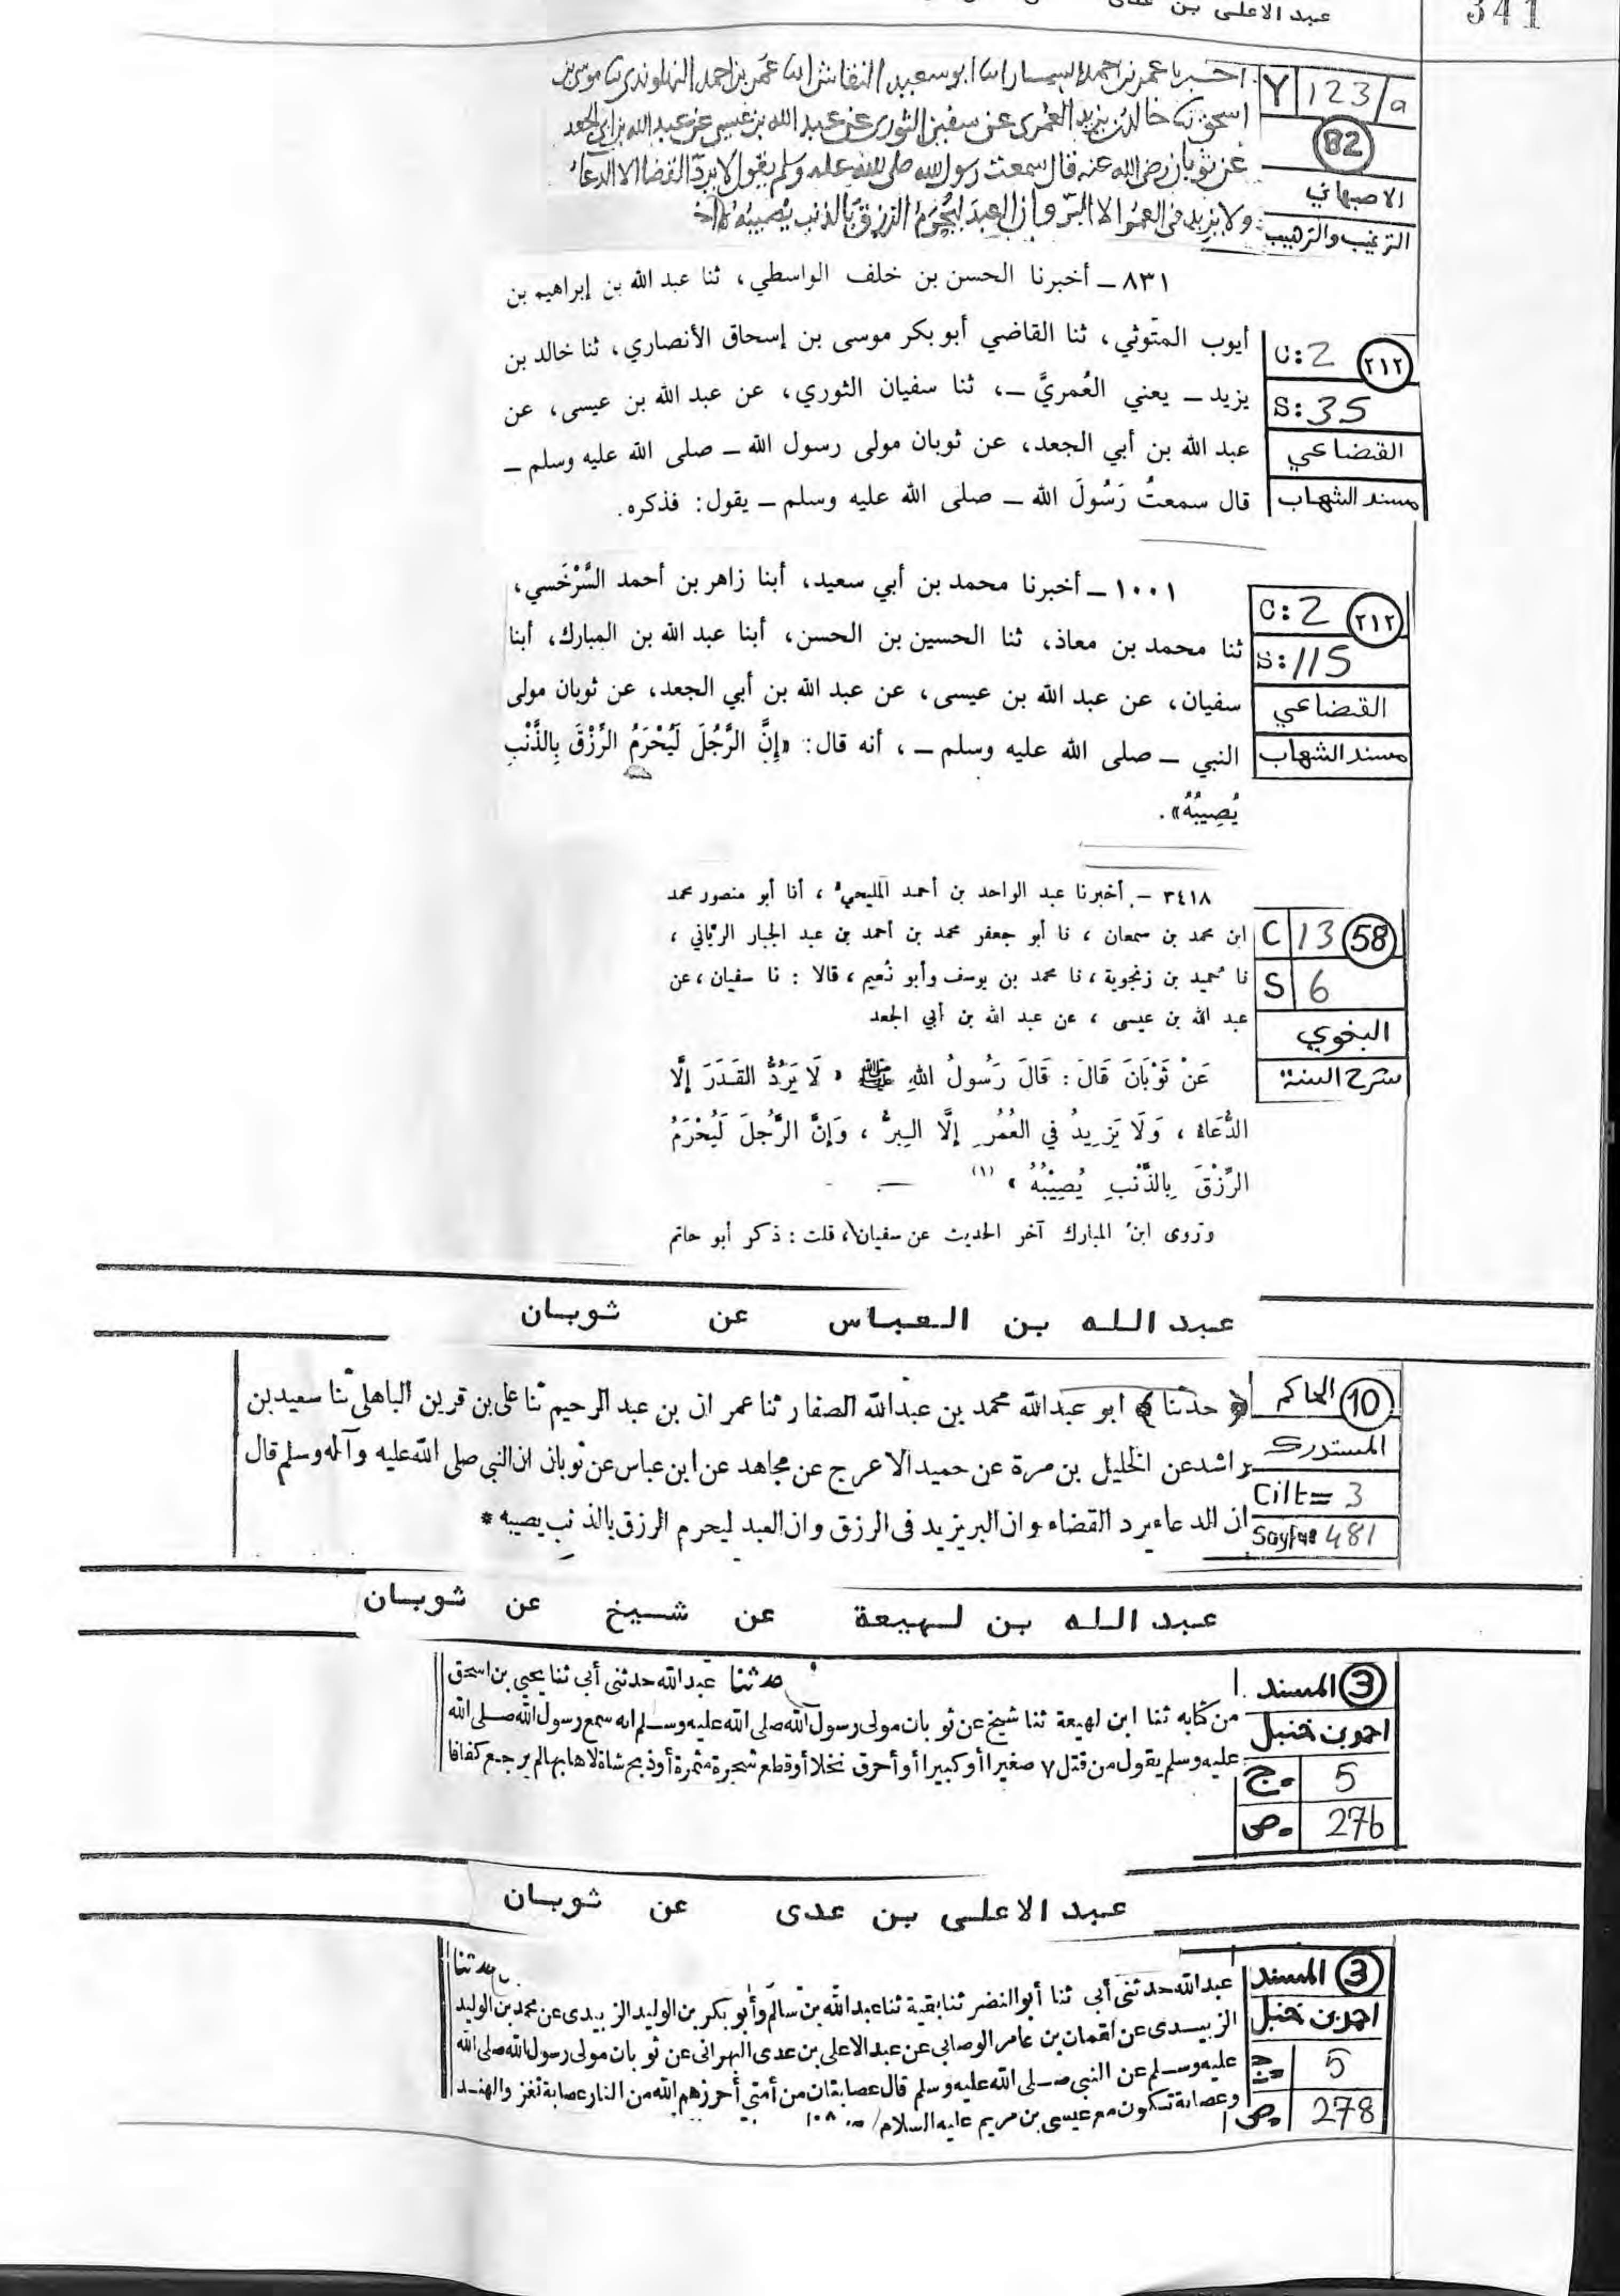 341
Y 123/a
82
الاصبهاني
الترغيب والترهيب
عن ثوبان رضى الله عنه قال سمعت رسول الله صلى الله عليه وسلم يقول لا يردّ القضا الا الدعاء
ولا يزيد فى العمر الا البرّ وان العبد ليُحرَمُ الرزق بالذنب يُصيبُهُ
٨٣١ ــ أخبرنا الحسن بن خلف الواسطي، ثنا عبد الله بن إبراهيم بن
C:2 ٢١٢
S:35
القضاعي
مسند الشهاب
أيوب المتوثي، ثنا القاضي أبو بكر موسى بن إسحاق الأنصاري، ثنا خالد بن
يزيد ــ يعني العُمريَّ ــ، ثنا سفيان الثوري، عن عبد الله بن عيسى، عن
عبد الله بن أبي الجعد، عن ثوبان مولى رسول الله ــ صلى الله عليه وسلم ــ
قال سمعتُ رَسُولَ الله ــ صلى الله عليه وسلم ــ يقول: فذكره.
١٠٠١ ــ أخبرنا محمد بن أبي سعيد، أبنا زاهر بن أحمد السَّرْخَسي،
C:2 ٢١٢
S:115
القضاعي
مسند الشهاب
ثنا محمد بن معاذ، ثنا الحسين بن الحسن، أبنا عبد الله بن المبارك، أبنا
سفيان، عن عبد الله بن عيسى، عن عبد الله بن أبي الجعد، عن ثوبان مولى
النبي ــ صلى الله عليه وسلم ــ، أنه قال: «إِنَّ الرَّجُلَ لَيُحْرَمُ الرِّزْقَ بِالذَّنْبِ
يُصِيبُهُ».
٣٤١٨ ــ أخبرنا عبد الواحد بن أحمد المليحيُ ، أنا أبو منصور محمد
C 13 58
S 6
البغوي
شرح السنة
ابن محمد بن سمعان ، نا أبو جعفر محمد بن أحمد بن عبد الجبار الرياني ،
نا حميد بن زنجوية ، نا محمد بن يوسف وأبو نُعيم ، قالا : نا سفيان ، عن
عبد الله بن عيسى ، عن عبد الله بن أبي الجعد
عَنْ ثَوْبَانَ قَالَ : قَالَ رَسُولُ اللهِ ﷺ « لَا يَرُدُّ القَدَرَ إِلَّا
الدُّعَاءُ ، وَلَا يَزِيدُ في العُمُرِ إِلَّا البِرُّ ، وَإِنَّ الرَّجُلَ لَيُحْرَمُ
الرِّزْقَ بِالذَّنْبِ يُصِيْبُهُ » (١)
وروى ابنُ المبارك آخر الحديث عن سفيان، قلت : ذكر أبو حاتم
عبد الله بن العباس عن ثوبان
10 الحاكم
المستدرك
Cilt= 3
Sayfa 481
﴿ حدثنا ﴾ ابو عبدالله محمد بن عبدالله الصفار ثنا عمر ان بن عبد الرحيم ثنا على بن قرين الباهلى ثنا سعيد بن
راشد عن الخليل بن مرة عن حميد الاعرج عن مجاهد عن ابن عباس عن ثوبان ان النبي صلى الله عليه وآله وسلم قال
ان الدعاء يرد القضاء وان البر يزيد فى الرزق وان العبد ليحرم الرزق بالذنب يصيبه *
عبد الله بن لهيعة عن شيخ عن ثوبان
3 المسند
احمد بن حنبل
ج. 5
ص. 276
حدثنا عبدالله حدثنى أبى ثنا يحيى بن اسحق
من كتابه ثنا ابن لهيعة ثنا شيخ عن ثوبان مولى رسول الله صلى الله عليه وسلم انه سمع رسول الله صلى الله
عليه وسلم يقول من قتل ٧ صغيرا أو كبيرا أو أحرق نخلا أو قطع شجرة مثمرة أو ذبح شاة لاهابها لم يرجع كفافا
عبد الاعلى بن عدى عن ثوبان
3 المسند
احمد بن حنبل
ج. 5
ص. 278
حدثنا
عبدالله حدثنى أبى ثنا أبو النضر ثنا بقية ثنا عبدالله بن سالم وأبو بكر بن الوليد الزبيدى عن محمد بن الوليد
الزبيدى عن لقمان بن عامر الوصابى عن عبد الاعلى بن عدى البهرانى عن ثوبان مولى رسول الله صلى الله
عليه وسلم عن النبى صلى الله عليه وسلم قال عصابتان من أمتى أحرزهم الله من النار عصابة تغزو الهند
وعصابة تكون مع عيسى بن مريم عليه السلام